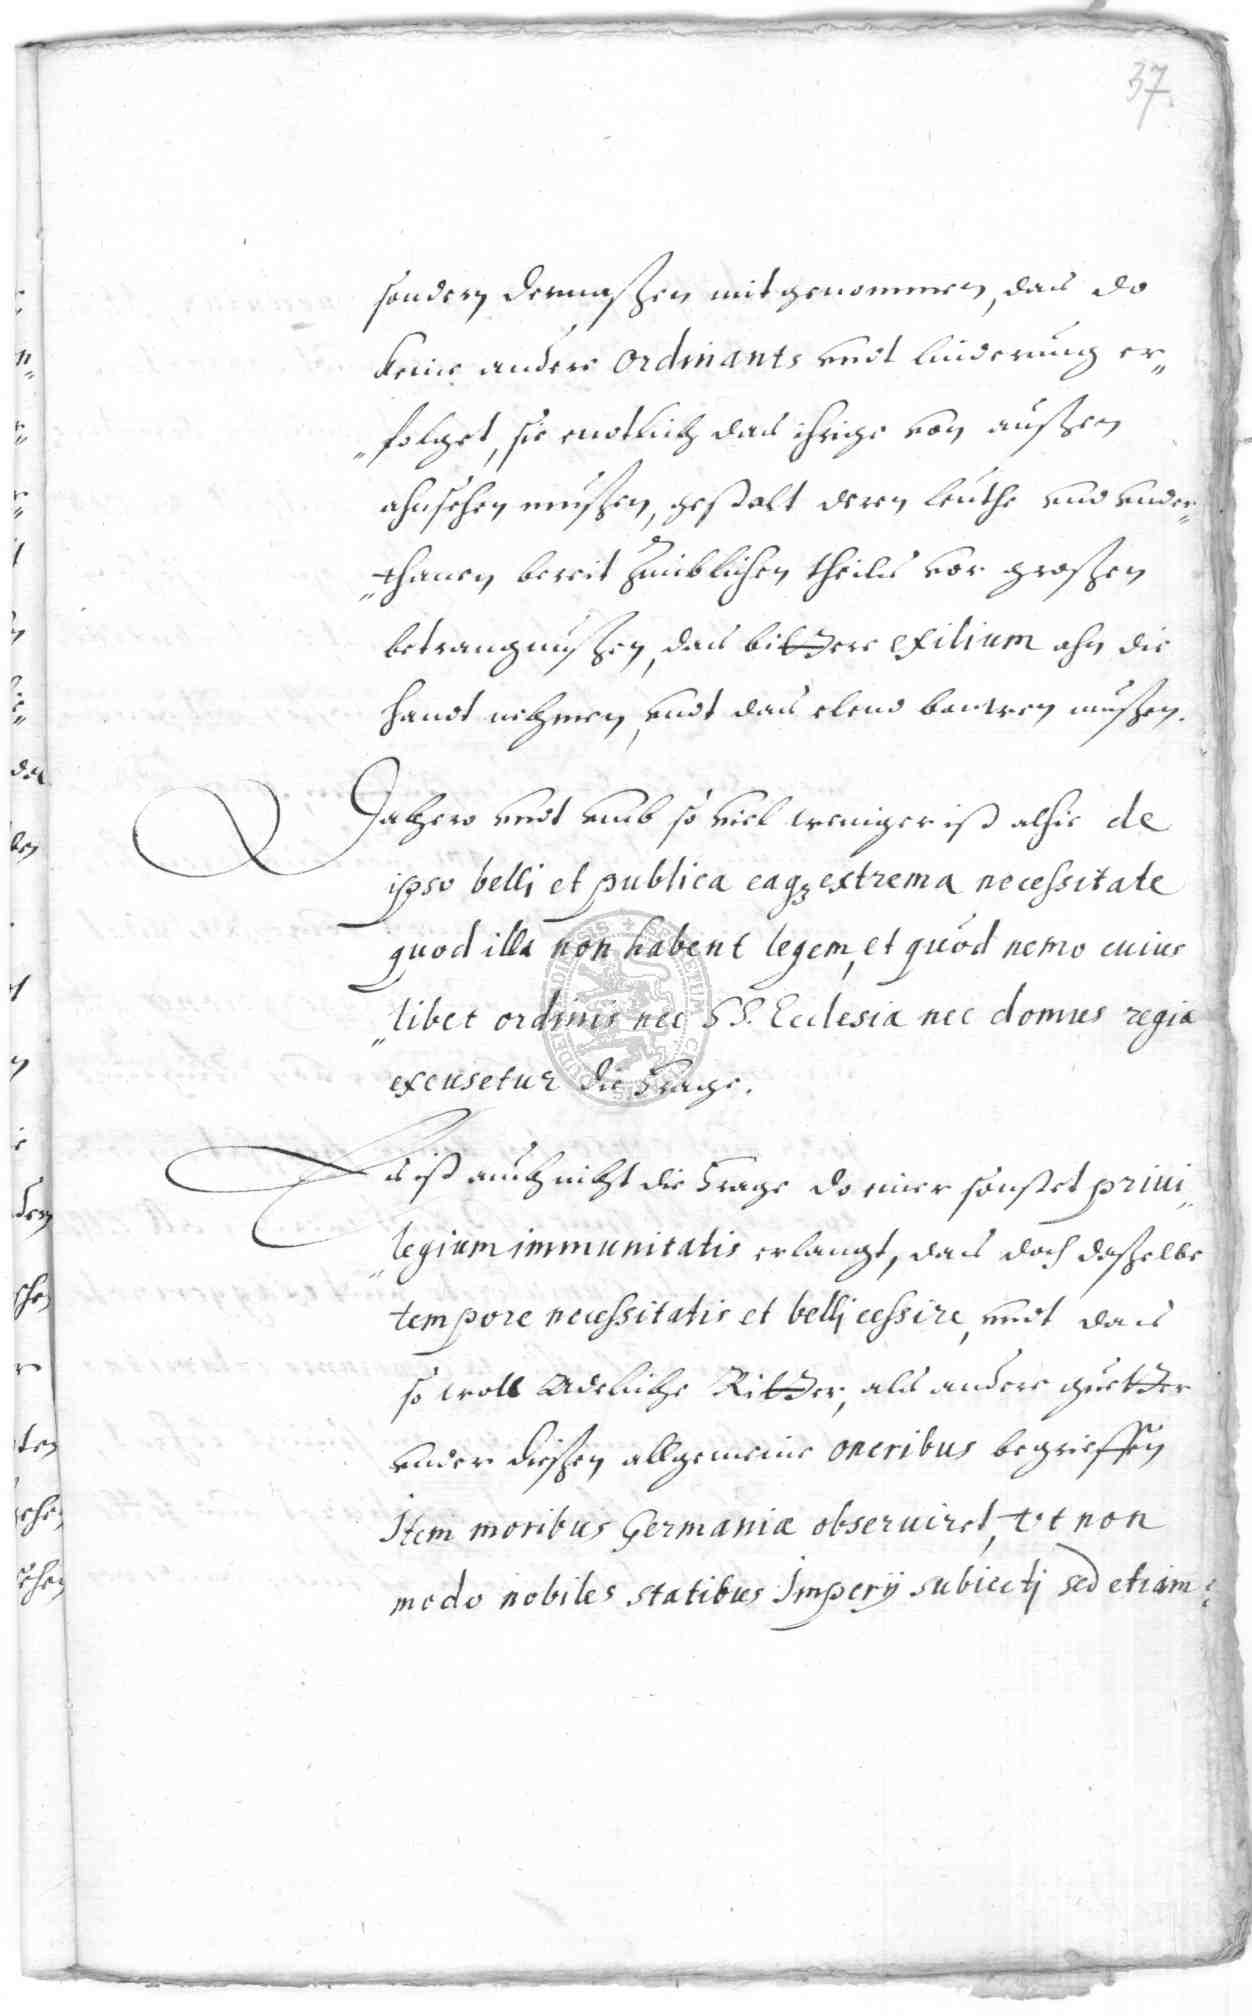 37
sondern dermaßen mitgenommen, das do
keine andere Ordinants vndt linderung er„
„folget, sie endtlich das ihrige von außen
ahnsehen mußen, gestalt deren leuthe vnd vnder„
„thanen bereit zimblichen theils vor großen
betrangnußen, das bittere exilium ahn die
handt nehmen, vndt das elend bauwen mußen.
Dahero vndt vmb so viel weniger ist alhie de
ipso belli et publica eaq3 extrema necessitate
quod illa non habent legem, et quòd nemo cuius
„libet ordinis nec S S. Ecclesia nec domus regia
excusetur die Frage.
Es ist auch nicht die Frage do einer sonstet priui„
„legium immunitatis erlangt, das doch daßelbe
tempore necessitatis et bellj cessire, vndt das
so woll Adeliche Ritter, als andere guetter
vnder dießen allgemeine oneribus begrieffen
Item moribus Germaniæ obseruiret, vt non
modo nobiles statibus Imperij subiectj sed etiam